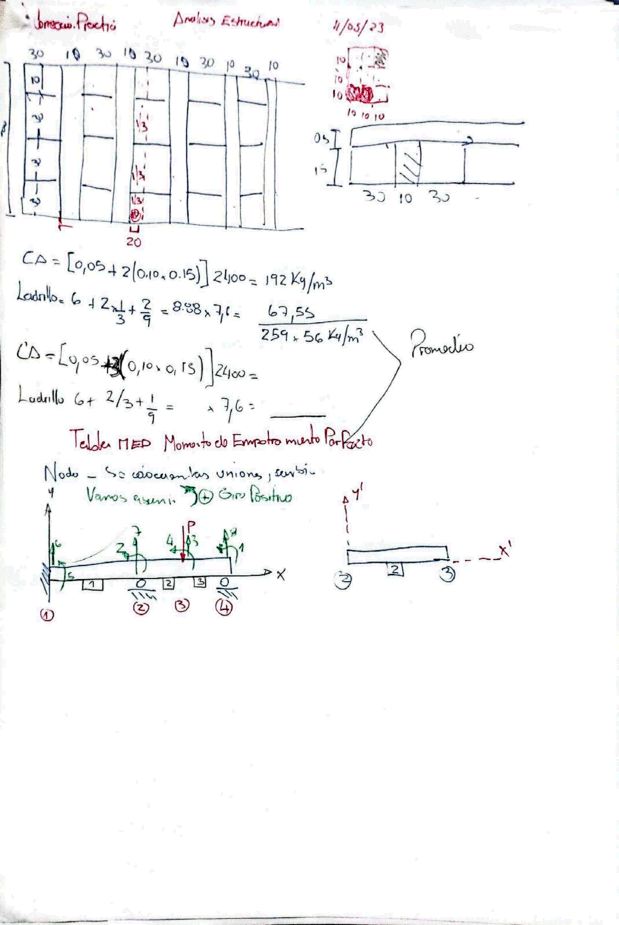 Analisis Estructural
11/05/23
30 10 30 10 30 10 30 10 30 10
10
10
10
10 10 10
05
15
30 10 30
1/3
1/3
1/3
20
CΔ = [0,05 + 2(0.10 x 0.15)] 2400 = 192 Kg/m³
Ladrillo = 6 + 2x1/3 + 2/9 = 8.88 x 7,6 = 67,55
259.56 Kg/m³
CΔ = [0,05 + 3(0,10 x 0,15)] 2400 =
Promedio
Ladrillo 6 + 2/3 + 1/9 = x 7,6 =
MED Momento de Empotramiento Perfecto
Nodo - Se colocan las uniones,
Vamos ⊕ Giro Positivo
y
6 7 P
2 4 3 8 1
5
1 2 3 X
① ② ③ ④
y'
X'
② 2 ③